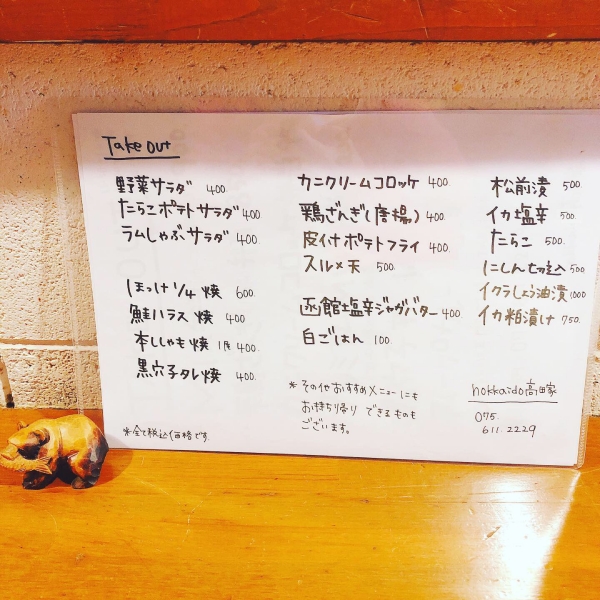 Take out
野菜サラダ 400.
たらこポテトサラダ 400
ラムしゃぶサラダ 400.
ほっけ1/4焼 600.
鮭ハラス焼 400
本ししゃも焼 1尾 400.
黒穴子タレ焼 400.
※全て税込価格です
カニクリームコロッケ 400.
鶏ざんぎ(唐揚) 400.
皮付ポテトフライ 400.
スルメ天 500.
函館塩辛ジャガバター 400.
白ごはん 100.
※その他おすすめメニューにも
お持ち帰りできるものも
ございます。
松前漬 500.
イカ塩辛 500.
たらこ 500.
にしん切込 500
イクラしょう油漬 1000
イカ粕漬け 750.
hokkaido高田家
075.
611.2229